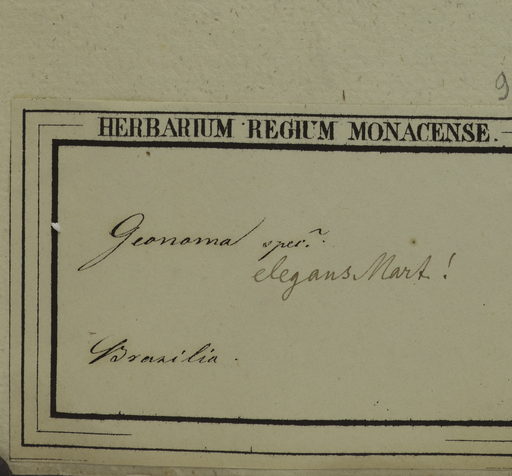 9
HERBARIUM REGIUM MONACENSE.
Geonoma spec.
elegans Mart!
Brasilia.